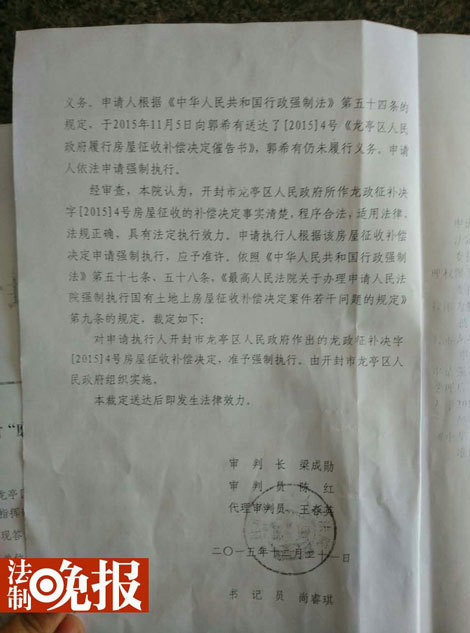 义务。申请人根据《中华人民共和国行政强制法》第五十四条的
规定，于2015年11月5日向郭希有送达了[2015]4号《龙亭区人民
政府履行房屋征收补偿决定催告书》，郭希有仍未履行义务。申请
人依法申请强制执行。
经审查，本院认为，开封市龙亭区人民政府所作龙政征补决
字[2015]4号房屋征收的补偿决定事实清楚，程序合法，适用法律、
法规正确，具有法定执行效力。申请执行人根据该房屋征收补偿
决定申请强制执行，应予准许。依照《中华人民共和国行政强制
法》第五十七条、五十八条，《最高人民法院关于办理申请人民法
院强制执行国有土地上房屋征收补偿决定案件若干问题的规定》
第九条的规定，裁定如下：
对申请执行人开封市龙亭区人民政府作出的龙政征补决字
[2015]4号房屋征收补偿决定，准予强制执行。由开封市龙亭区人
民政府组织实施。
本裁定送达后即发生法律效力。
审 判 长 梁成勋
审 判 员 陈 红
代理审判员 王春英
二〇一五年十二月三十一日
书 记 员 尚睿琪
法制晚报